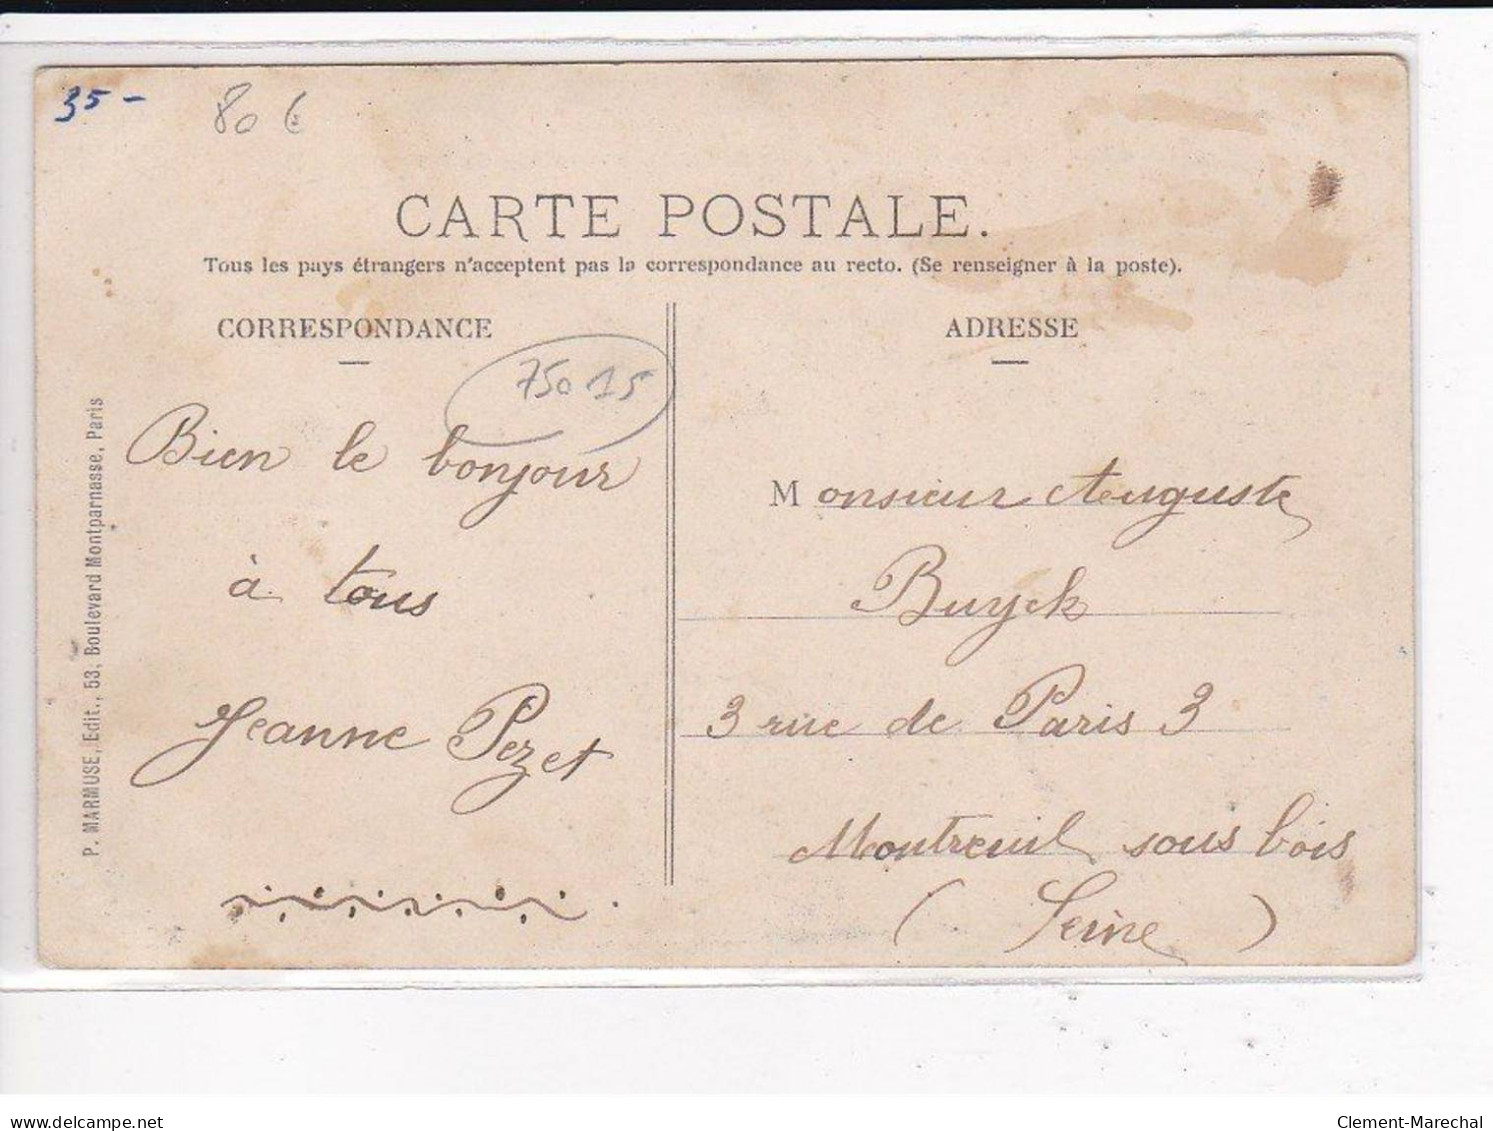 35 -
80 €
CARTE POSTALE.
Tous les pays étrangers n'acceptent pas la correspondance au recto. (Se renseigner à la poste).
CORRESPONDANCE
75015
Bien le bonjour
à tous
Jeanne Pezet
P. MARMUSE, Edit., 53, Boulevard Montparnasse, Paris
ADRESSE
Monsieur Auguste
Buyck
3 rue de Paris 3
Montreuil sous bois
(Seine)
www.delcampe.net
Clement-Marechal